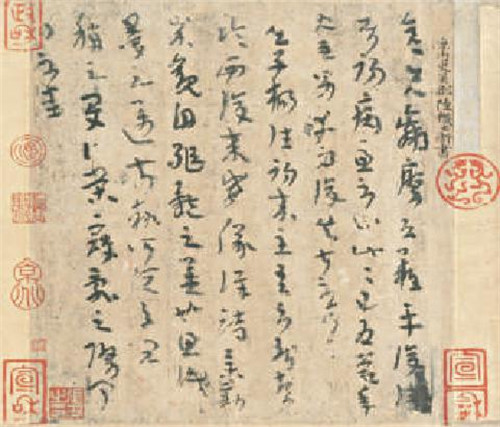 晉平原內史陸機士衡書
彥先羸瘵恐難平復往屬
初病慮不止此此已為慶承
使唯男幸為復失前憂耳
吳子楊往初來主吾不能盡
臨西復來威儀詳跱舉動
成觀自軀體之美也思識
量之邁前執所恒有宜
稱之夏伯榮寇亂之際聞
問不悉
政和
宣和
宣和